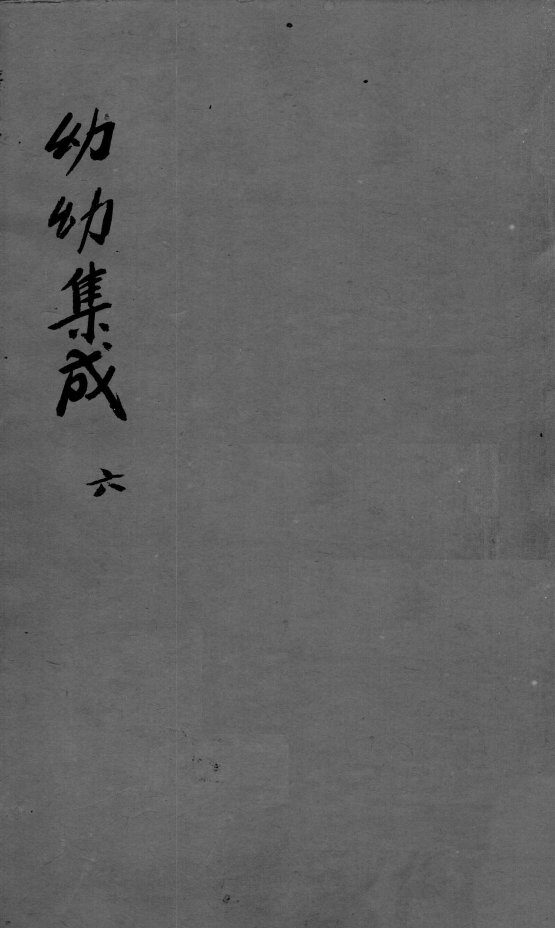 幼幼集成 六